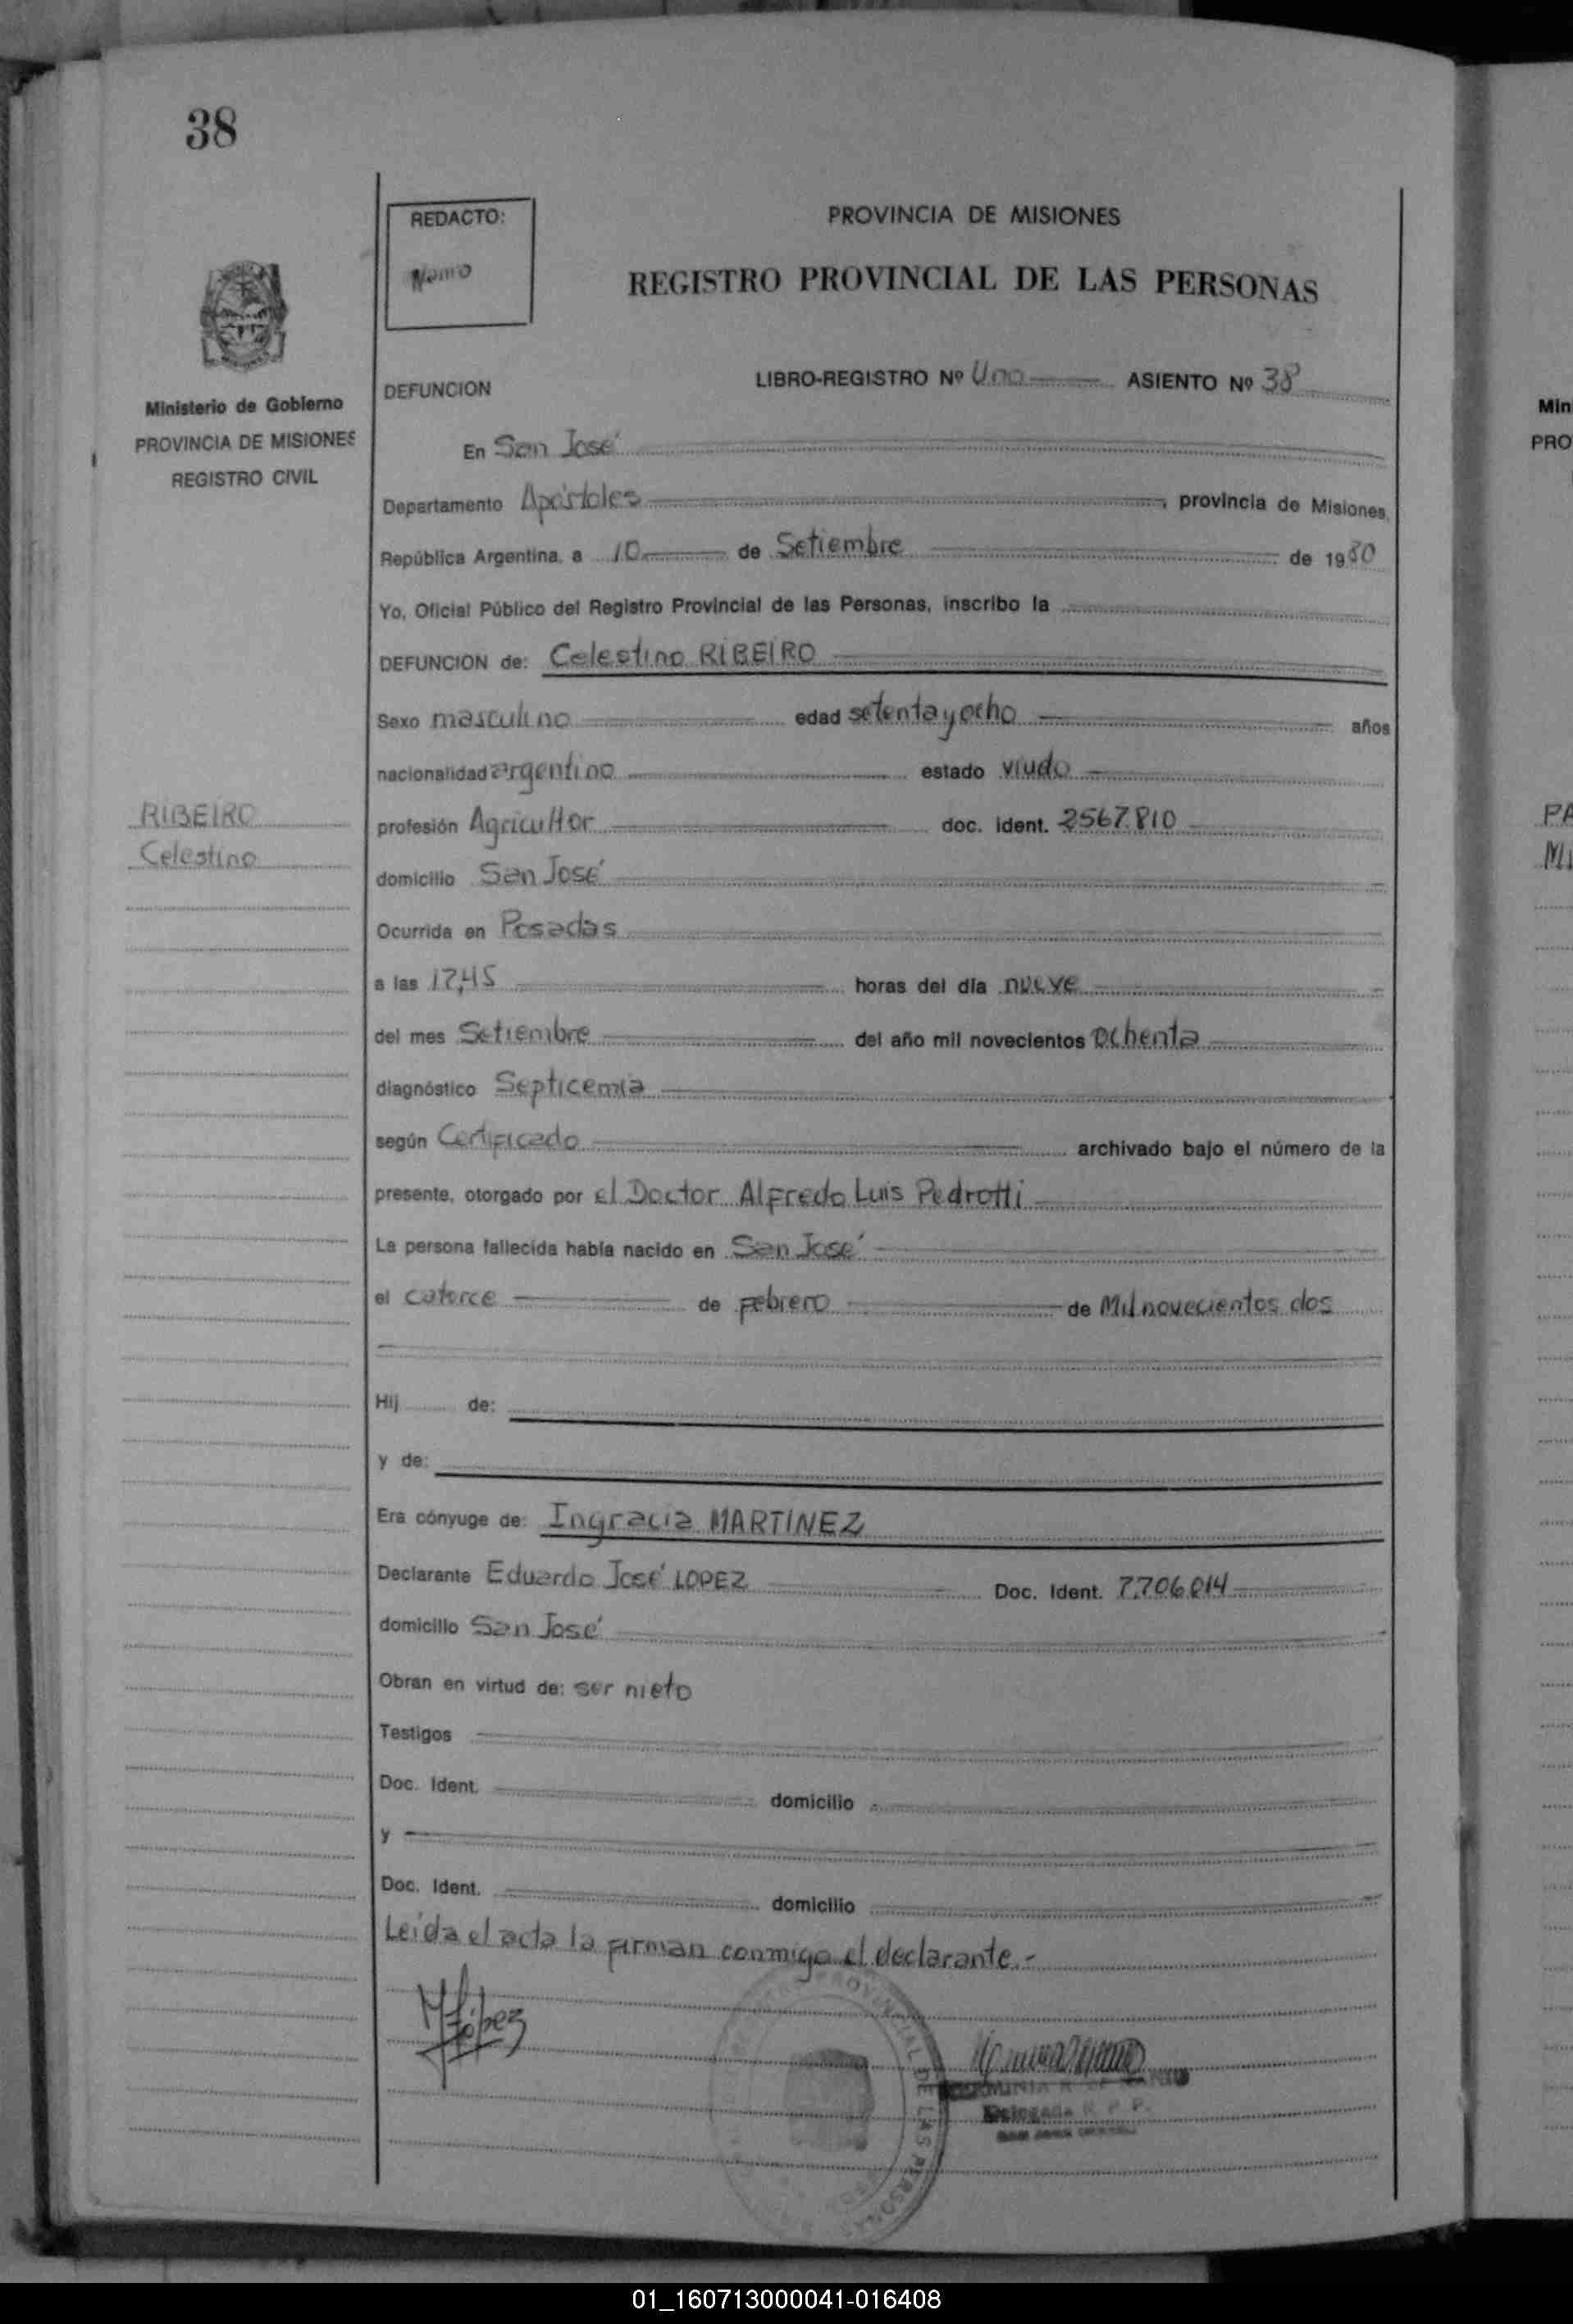 38
REDACTO:
PROVINCIA DE MISIONES
REGISTRO PROVINCIAL DE LAS PERSONAS
Ministerio de Gobierno
PROVINCIA DE MISIONES
REGISTRO CIVIL
DEFUNCION
LIBRO-REGISTRO Nº Uno ASIENTO Nº 38
En San José
Departamento Apóstoles, provincia de Misiones,
República Argentina, a 10 de Setiembre de 1980
Yo, Oficial Público del Registro Provincial de las Personas, inscribo la
DEFUNCION de: Celestino RIBEIRO
Sexo masculino edad setenta y ocho años
nacionalidad argentino estado viudo
RIBEIRO
Celestino
profesión Agricultor doc. ident. 2567.810
domicilio San José
Ocurrida en Posadas
a las 17,45 horas del día nueve
del mes Setiembre del año mil novecientos ochenta
diagnóstico Septicemia
según Certificado archivado bajo el número de la
presente, otorgado por el Doctor Alfredo Luis Pedrotti
La persona fallecida había nacido en San José
el catorce de febrero de Mil novecientos dos
Hij de:
y de:
Era cónyuge de: Ingracia MARTINEZ
Declarante Eduardo José LOPEZ Doc. Ident. 7.706.014
domicilio San José
Obran en virtud de: ser nieto
Testigos
Doc. Ident. domicilio
y
Doc. Ident. domicilio
Leida el acta la firman conmigo el declarante.-
López
Delegada R. P. P.
Min
PRO
PA
Mi
01_160713000041-016408